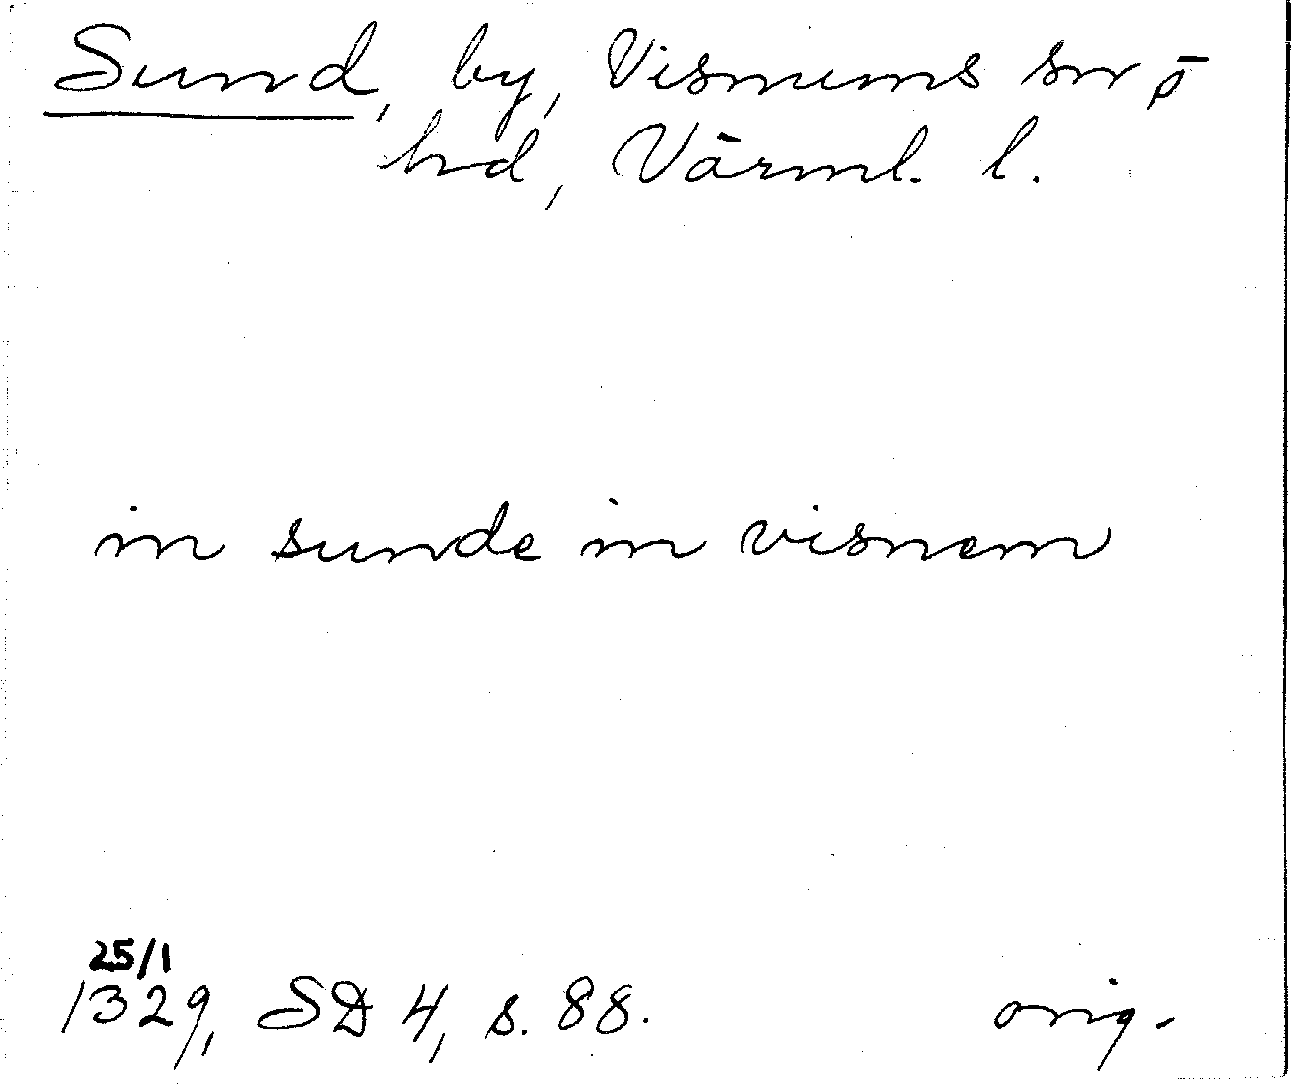 Sund, by, Visnums sn o
hd, Värml. l.
in sunde in visnem
25/1
1329, SD 4, s. 88. orig.